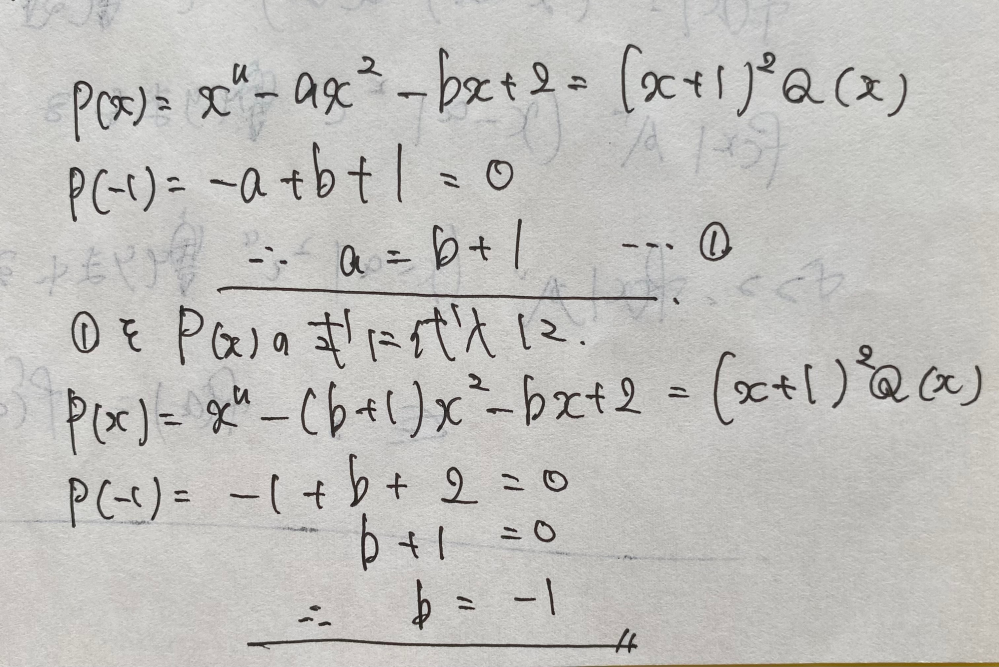 P(x) = x⁴ - ax² - bx + 2 = (x+1)² Q(x)
P(-1) = -a + b + 1 = 0
∴ a = b + 1 --- ①
① を P(x) の 式に代入して.
P(x) = x⁴ - (b+1)x² - bx + 2 = (x+1)² Q(x)
P(-1) = -1 + b + 2 = 0
b + 1 = 0
∴ b = -1